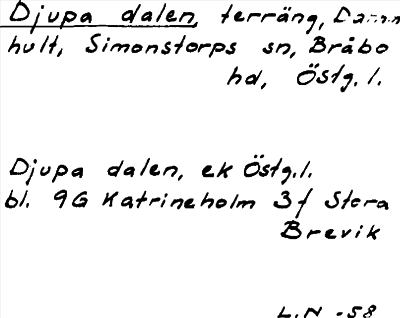 Djupa dalen, terräng, Damm
hult, Simonstorps sn, Bråbo
hd, Östg. l.
Djupa dalen, ek Östg. l.
bl. 9G Katrineholm 3f Stora
Brevik
L.N -58